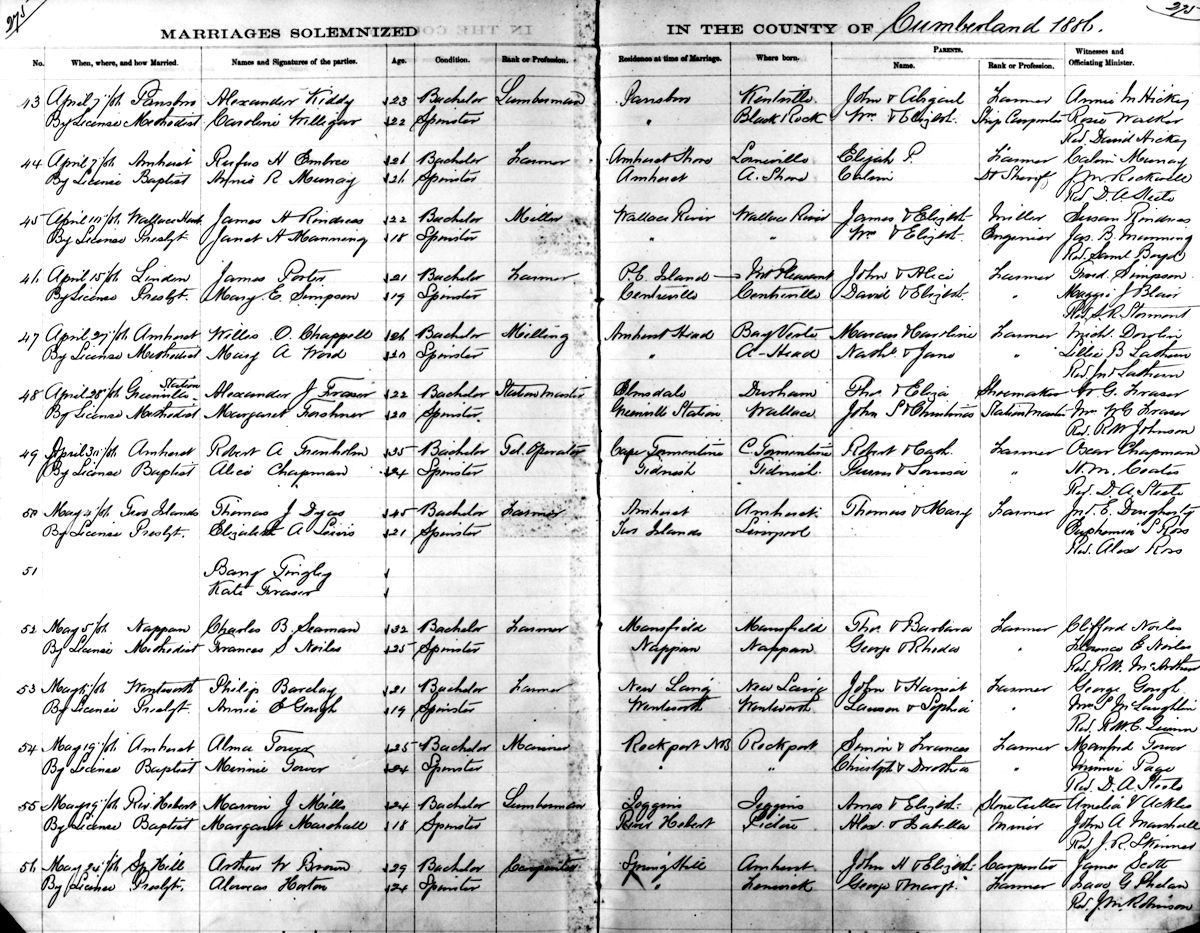 275
275
MARRIAGES SOLEMNIZED IN THE COUNTY OF Cumberland 1886.
No. When, where, and how Married. Names and Signatures of the parties. Age. Condition. Rank or Profession. Residence at time of Marriage. Where born. PARENTS. Name. Rank or Profession. Witnesses and Officiating Minister.
43 April 7/86 Parrsboro Alexander Kiddy 23 Bachelor Lumberman Parrsboro Kentville John & Abigail Farmer Annie M Hickey
By License Methodist Caroline Willigar 22 Spinster " Black Rock Wm & Elizbt. Ship Carpenter Rosie Walker
Rev David Hickey
44 April 7/86 Amherst Rufus H Embree 26 Bachelor Farmer Amherst Shore Lorneville Elijah P. Farmer Calvin Munay
By License Baptist Annie R Munay 26 Spinster Amherst A. Shore Calvin Sheriff J M Rockwell
Rev D. A Steele
45 April 10/86 Wallace James H 22 Bachelor Miller Wallace River Wallace River James & Elizbt Miller Susan
By License Presbyt. Janet A Manning 18 Spinster " " Wm & Elizbt. Engineer Jas. B Manning
Rev Saml Boyd
46 April 15/86 Linden James Porter 21 Bachelor Farmer P.E. Island Mt Pleasant John & Alice Farmer Simpson
By License Presbyt. Mary E. Simpson 19 Spinster Centreville Centreville David & Elizbt. " Maggie J Blair
47 April 27/86 Amherst Willis O. Chappell 26 Bachelor Milling Amherst Head Bay Verte Marcus & Caroline Farmer
By License Methodist Mary A Wood 20 Spinster " A-Head Nathl & Jane " Lillie B Lathern
Rev Jn Lathern
48 April 28/86 Greenville Station Alexander J Fraser 22 Bachelor Station Master Elmsdale Durham Thos & Eliza Shoemaker W G Fraser
By License Methodist Margaret Forshner 20 Spinster. Greenville Station Wallace John S & Christina Station Master Mrs W G Fraser
Rev. R W Johnson
49 April 30/86 Amherst Robert A Trenholm 35 Bachelor Tel. Operator Cape Tormentine C. Tormentine Robert & Cath. Farmer Oscar Chapman
By License Baptist Alice Chapman 24 Spinster Tidnish Tidnish & Louisa " H. M. Coates
Rev. D. A Steele
50 May 4/86 Five Islands Thomas J Dyas 45 Bachelor Farmer Amherst Amherst Thomas & Mary Farmer Jn. E. Daugherty
By License Presbyt. Elizabeth A Lewis 21 Spinster Five Islands Liverpool Euphemia S Ross
Rev. Alex Ross
51 Tingley
Kate Fraser
52 May 5/86 Nappan Charles B. Seaman 32 Bachelor Farmer Mansfield Mansfield Thos & Barbara Farmer Clifford Noiles
By License Methodist Frances S Noiles 25 Spinster Nappan Nappan George & Rhoda " Florence E Noiles
Rev R.M. McArthur
53 May Wentworth Philip Barclay 21 Bachelor Farmer New Laing New Laing John & Harriet Farmer George Gough
By License Presbyt. Annie E Gough 19 Spinster Wentworth Wentworth Lawson & Sophia " McLaughlin
54 May 19/86 Amherst Alma Tower 25 Bachelor Mariner Rockport NB Rockport Simon & Frances Farmer Manford Tower
By License Baptist Minnie Tower 24 Spinster " Christoph & Dorothea " Minnie Page
Rev. D. A Steele
55 May 19/86 Riv. Hebert Marvin J Mills 24 Bachelor Lumberman Joggins Joggins Amos & Elizbt. Stone Cutter Amelia V Ackles
By License Baptist Margaret Marshall 18 Spinster River Hebert Pictou Alex & Isabella Miner John A Marshall
Rev. J. R Skinner
56 May 24/86 Sp. Hill Arthur W Brown 29 Bachelor Carpenter Spring Hill Amherst John H & Elizbt. Carpenter James Scott
By License Presbyt. Horton 24 Spinster " George & Margt. Farmer G Phelan
Rev. J. M. Robinson